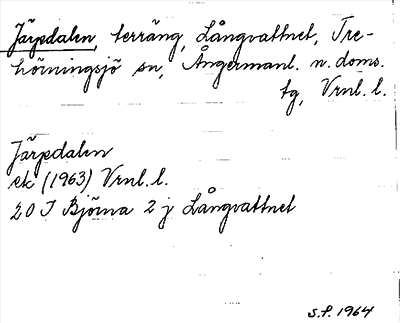 Järpdalen, terräng, Långvattnet, Tre-
hörningsjö sn, Ångermanl. n. doms.
tg, Vrnl. l.
Järpdalen
ek (1963) Vrnl. l.
20 I Björna 2 j Långvattnet
S.F. 1964